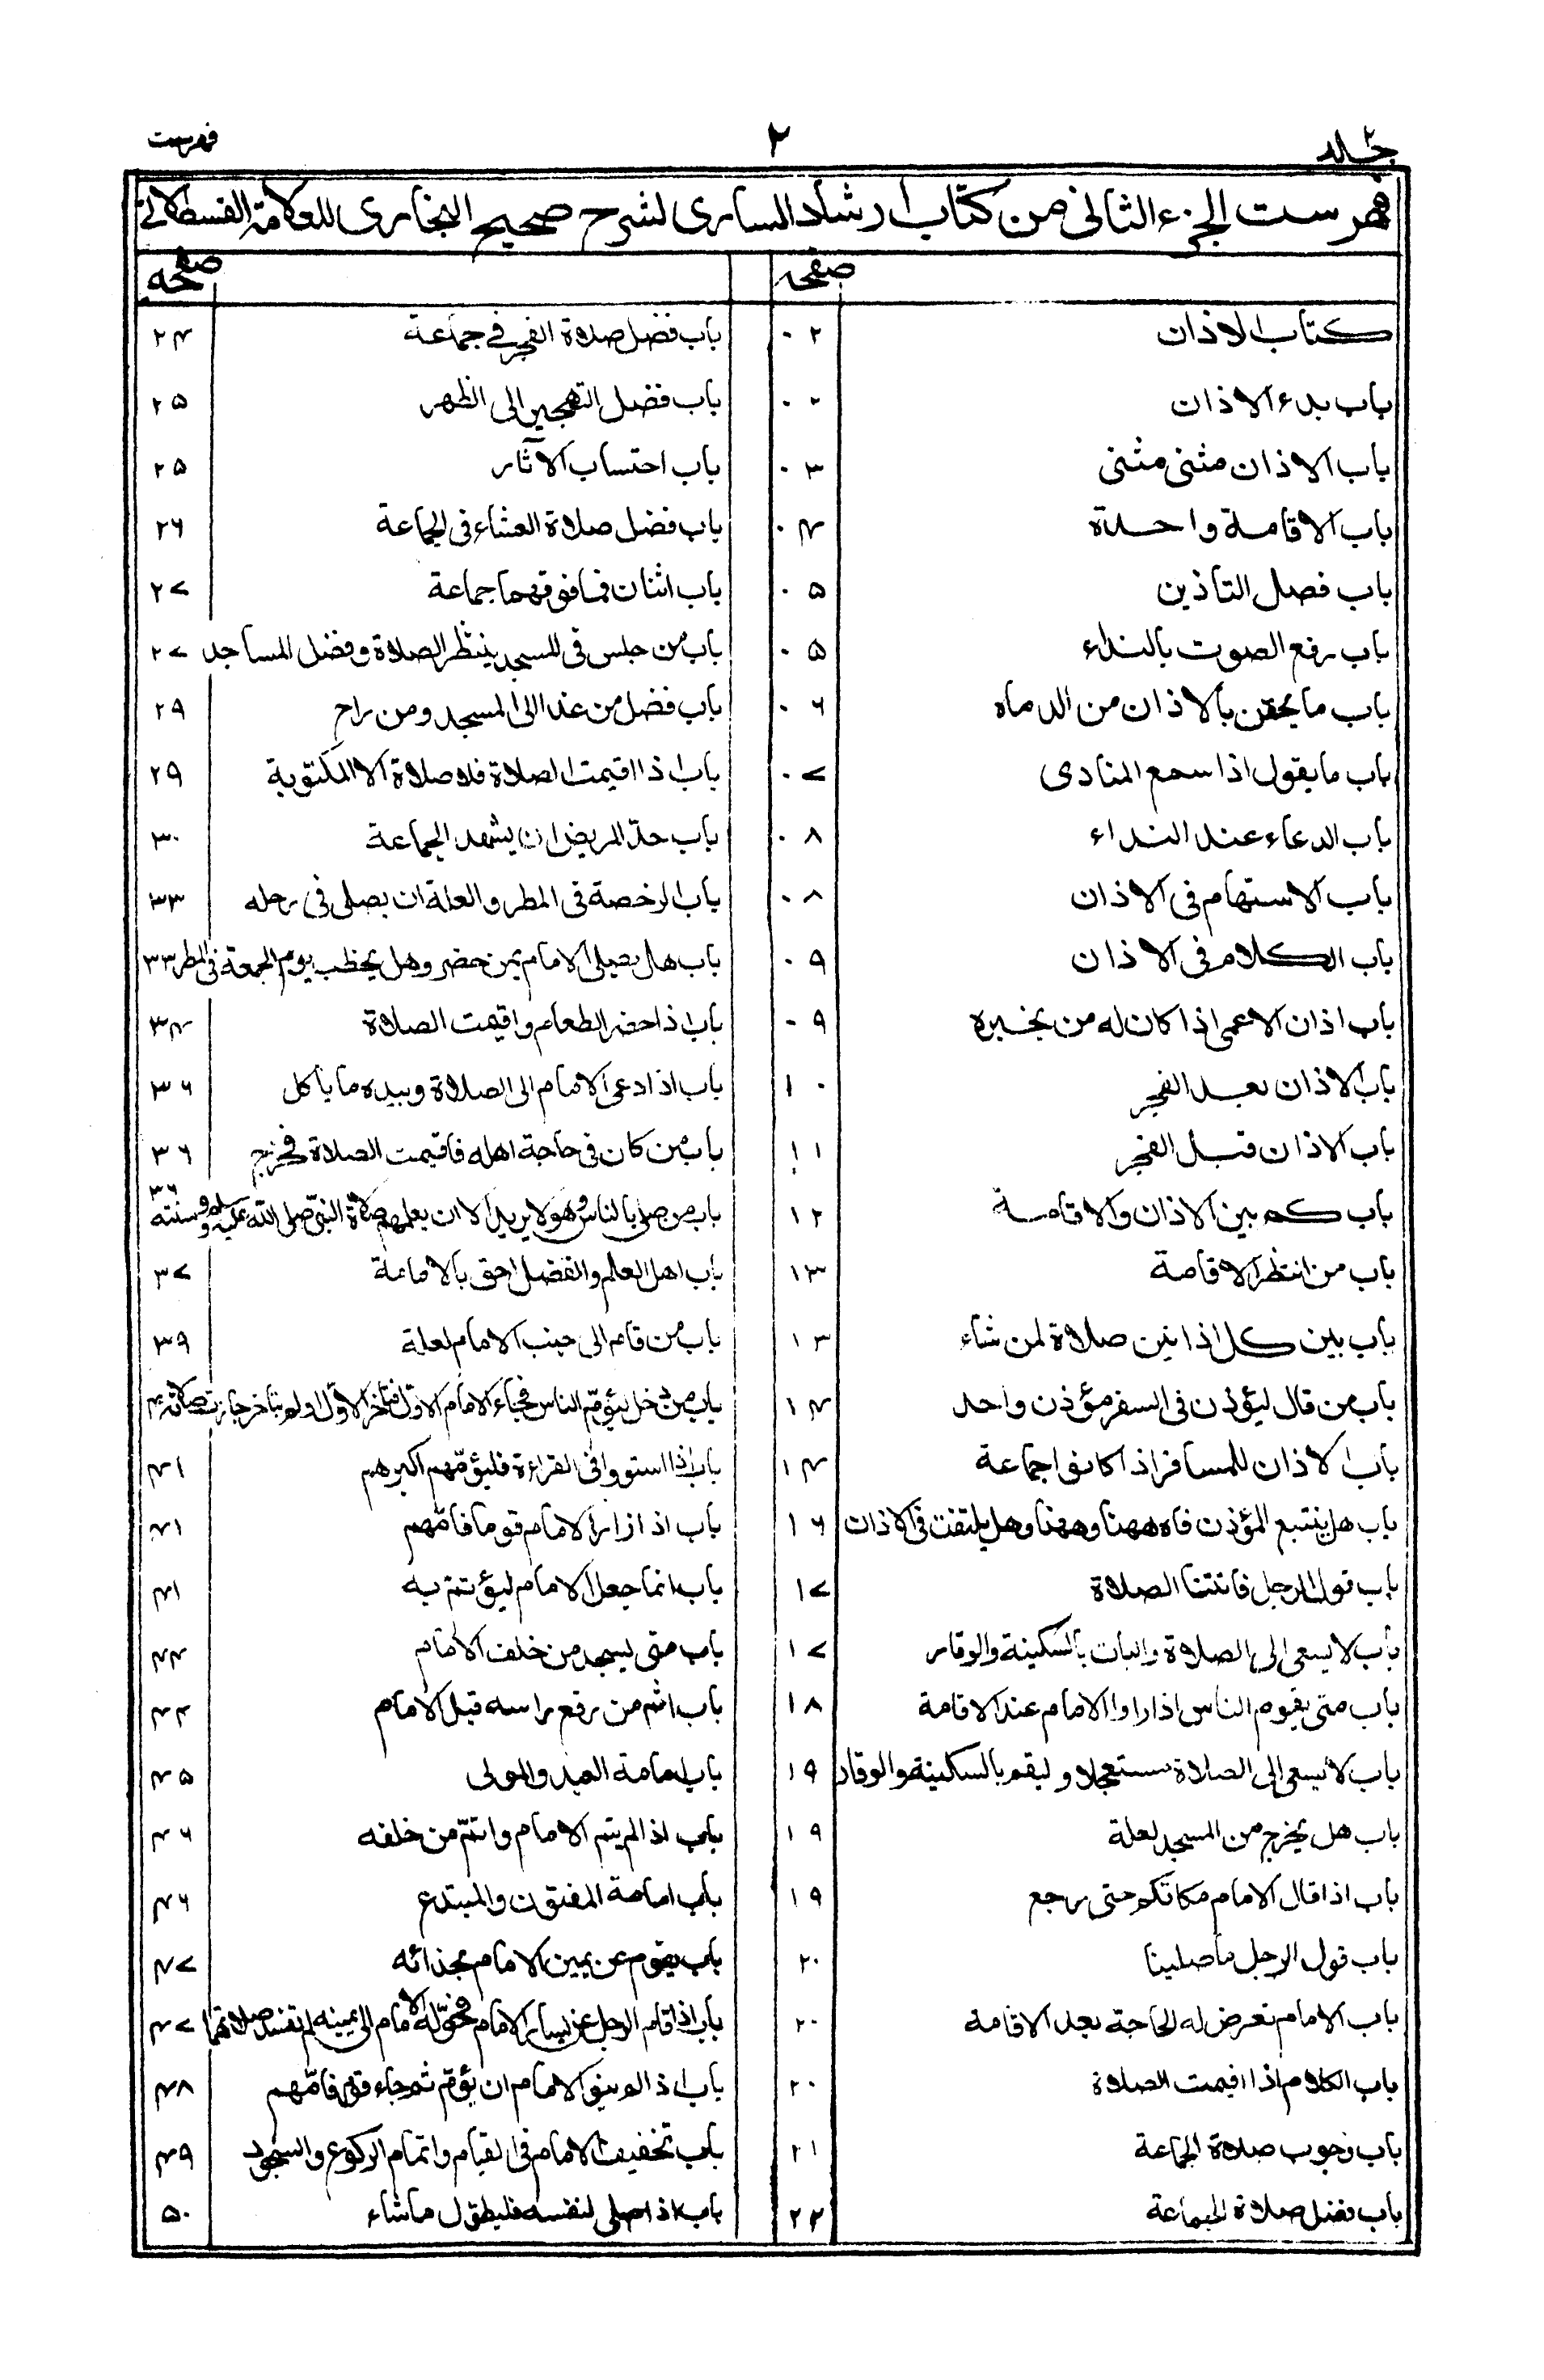 جلد ٢
٢
فهرست
فهرست الجزء الثانى من كتاب ارشاد السارى لشرح صحيح البخارى للعلامة القسطلانى
صفحه
كتاب الاذان ٠٢
باب بدء الاذان ٠٢
باب الاذان مثنى مثنى ٠٣
باب الاقامة واحدة ٠۴
باب فضل التاذين ٠۵
باب رفع الصوت بالنداء ٠۵
باب ما يحقن بالاذان من الدماء ٠۶
باب ما يقول اذا سمع المنادى ٠٧
باب الدعاء عند النداء ٠٨
باب الاستهام فى الاذان ٠٨
باب الكلام فى الاذان ٠٩
باب اذان الاعمى اذا كان له من يخبره ٠٩
باب الاذان بعد الفجر ١٠
باب الاذان قبل الفجر ١١
باب كم بين الاذان والاقامة ١٢
باب من انتظر الاقامة ١٣
باب بين كل اذانين صلاة لمن شاء ١٣
باب من قال ليؤذن فى السفر مؤذن واحد ١۴
باب الاذان للمسافر اذا كانوا جماعة ١۴
باب هل يتتبع المؤذن فاه ههنا وههنا وهل يلتفت فى الاذان ١۶
باب قول الرجل فاتتنا الصلاة ١٧
باب لا يسعى الى الصلاة واليات بالسكينة والوقار ١٧
باب متى يقوم الناس اذا راوا الامام عند الاقامة ١٨
باب لا يسعى الى الصلاة مستعجلا وليقم بالسكينة والوقار ١٩
باب هل يخرج من المسجد لعلة ١٩
باب اذا قال الامام مكانكم حتى يرجع ١٩
باب قول الرجل ما صلينا ٢٠
باب الامام تعرض له الحاجة بعد الاقامة ٢٠
باب الكلام اذا اقيمت الصلاة ٢٠
باب وجوب صلاة الجماعة ٢١
باب فضل صلاة الجماعة ٢٢
صفحه
باب فضل صلاة الفجر فى جماعة ٢۴
باب فضل التهجير الى الظهر ٢۵
باب احتساب الآثار ٢۵
باب فضل صلاة العشاء فى الجماعة ٢۶
باب اثنان فما فوقهما جماعة ٢٧
باب من جلس فى المسجد ينتظر الصلاة وفضل المساجد ٢٧
باب فضل من غدا الى المسجد ومن راح ٢٩
باب اذا اقيمت الصلاة فلا صلاة الا المكتوبة ٢٩
باب حد المريض ان يشهد الجماعة ٣٠
باب الرخصة فى المطر والعلة ان يصلى فى رحله ٣٣
باب هل يصلى الامام بمن حضر وهل يخطب يوم الجمعة فى المطر ٣٣
باب اذا حضر الطعام واقيمت الصلاة ٣۴
باب اذا دعى الامام الى الصلاة وبيده ما ياكل ٣۶
باب من كان فى حاجة اهله فاقيمت الصلاة فخرج ٣۶
باب من صلى بالناس وهو لا يريد الا ان يعلمهم صلاة النبى صلى الله عليه وسلم وسنته ٣۶
باب اهل العلم والفضل احق بالامامة ٣٧
باب من قام الى جنب الامام لعلة ٣٩
باب من دخل ليؤم الناس فجاء الامام الاول فتاخر الاول اولم يتاخر جازت صلاته ۴٠
باب اذا استووا فى القراءة فليؤمهم اكبرهم ۴١
باب اذا زار الامام قوما فامهم ۴١
باب انما جعل الامام ليؤتم به ۴١
باب متى يسجد من خلف الامام ۴۴
باب اثم من رفع راسه قبل الامام ۴۴
باب امامة العبد والمولى ۴۵
باب اذا لم يتم الامام واتم من خلفه ۴۶
باب امامة المفتون والمبتدع ۴۶
باب يقوم عن يمين الامام بحذائه ۴٧
باب اذا قام الرجل عن يسار الامام فحوّله الامام الى يمينه لم تفسد صلاتهما ۴٧
باب اذا لم ينو الامام ان يؤم ثم جاء قوم فامّهم ۴٨
باب تخفيف الامام فى القيام واتمام الركوع والسجود ۴٩
باب اذا صلى لنفسه فليطول ما شاء ۵٠